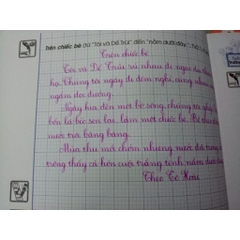 trên chiếc bè (từ "Tôi và Dế Trũi" đến "nằm dưới đáy").
Trên chiếc bè
Tôi và Dế Trũi rủ nhau đi ngao du thiên
hạ. Chúng tôi ngày đi đêm nghỉ, cùng nhau say
ngắm dọc đường.
Ngày kia đến một bờ sông, chúng tôi ghép
bèo sen lại, làm một chiếc bè. Bè
nước trôi băng băng.
Mùa thu mới chớm nhưng nước đã trong
trông thấy cả hòn cuội trắng tinh nằm dưới
Theo Tô Hoài